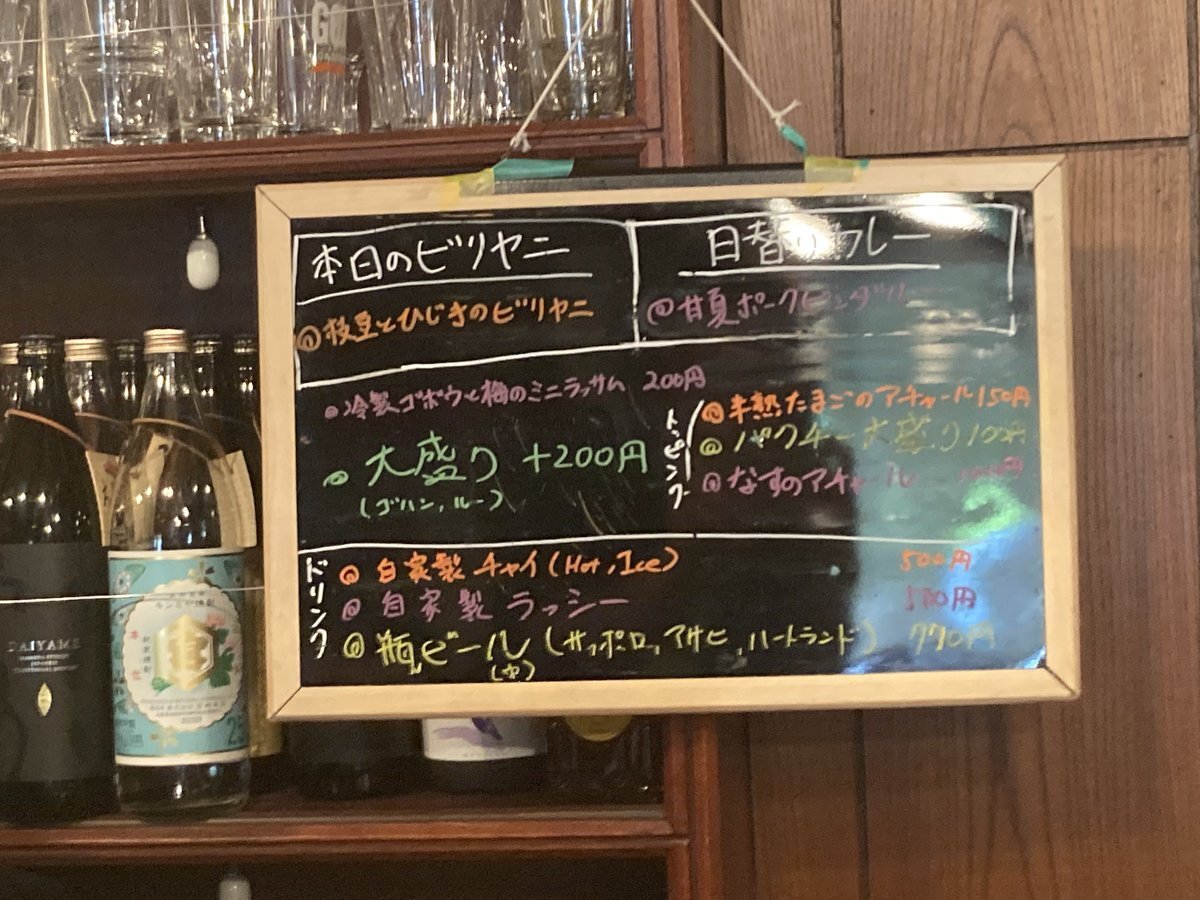 GO
本日のビリヤニ
@枝豆とひじきのビリヤニ
日替りカレー
@甘夏ポークビンダルー
@冷製ゴボウと梅のミニラッサム 200円
@大盛り +200円
(ゴハン,ルー)
トッピング
@半熟たまごのアチャール150円
@パクチー大盛り100円
@なすのアチャール
ドリンク
@自家製チャイ(Hot,Ice) 500円
@自家製ラッシー 500円
@瓶ビール(サッポロ,アサヒ,ハートランド) 770円
(中)
DAIYAME
キンミヤ焼酎